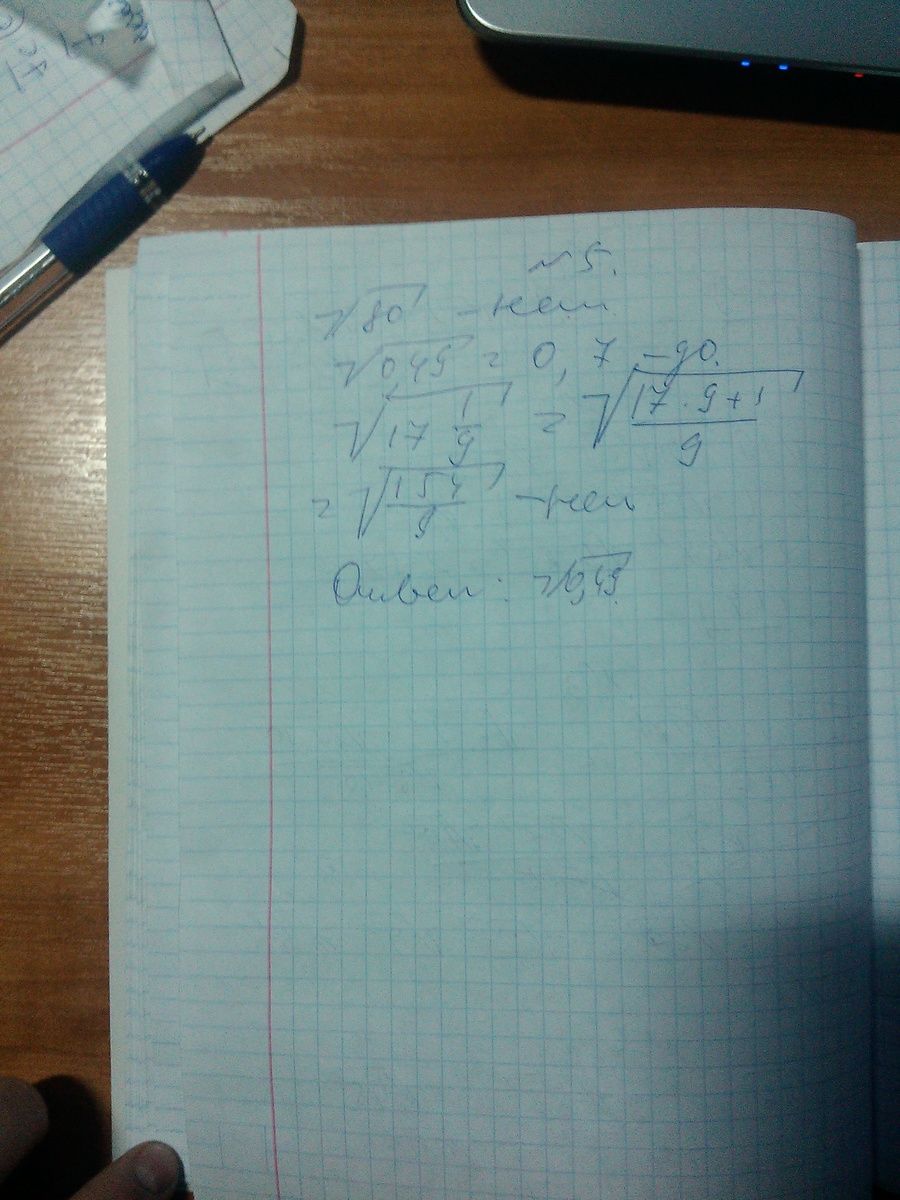 №5.
√80 - нет
√0,49 = 0,7 - да.
√17 1/9 = √(17·9+1)/9
= √154/9 - нет
Ответ: √0,49